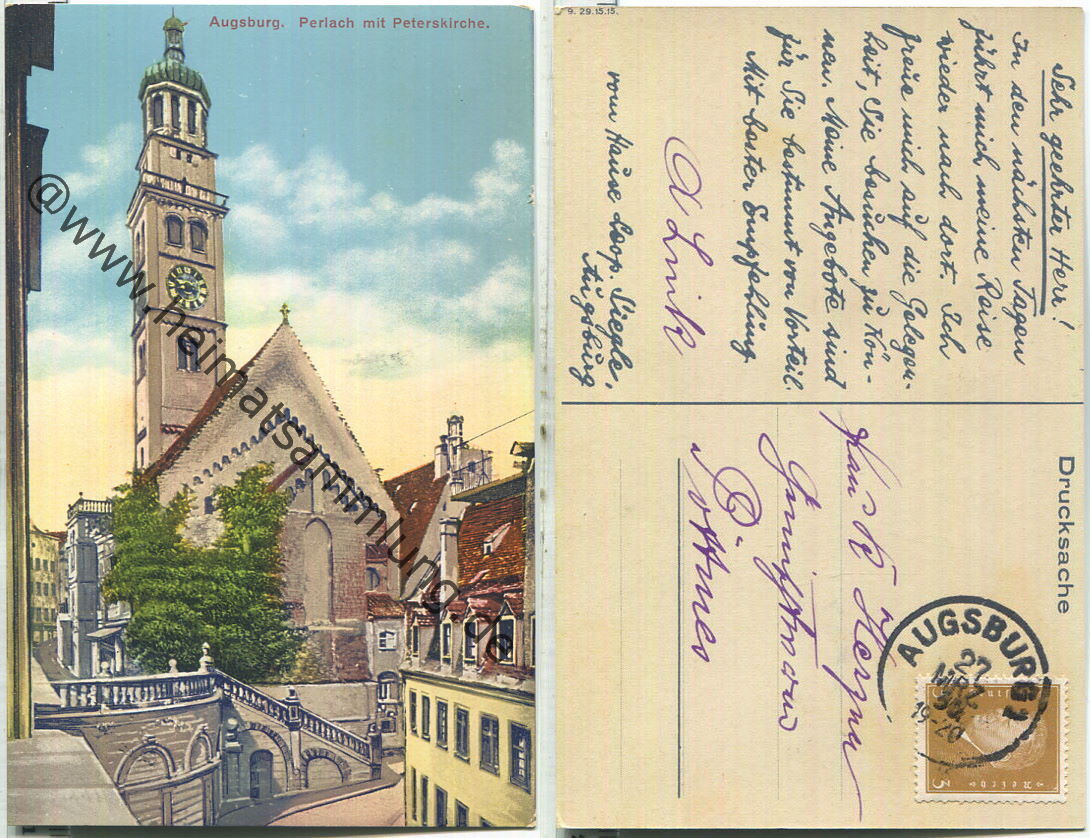 Augsburg. Perlach mit Peterskirche.
@www.heimatsammlung.de
9. 29.15.15.
Sehr geehrter Herr!
In den nächsten Tagen
führt mich meine Reise
wieder nach dort. Ich
freue mich auf die Gelegen-
heit, Sie besuchen zu kön-
nen. Meine Angebote sind
für Sie bestimmt von Vorteil.
Mit bester Empfehlung
vom Hause Leop. Siegle,
Augsburg
A Link
Drucksache
AUGSBURG 2
27
MRZ
19-20
3